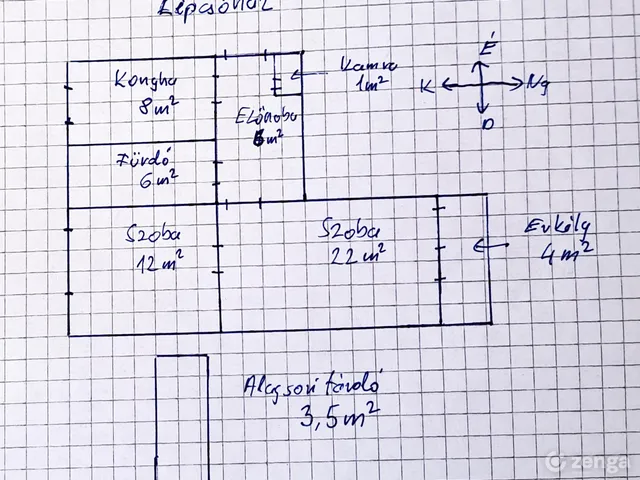 Lépcsőház
Konyha
8 m²
Kamra
1 m²
É
K
Ny
D
Előszoba
6 m²
Fürdő
6 m²
Szoba
12 m²
Szoba
22 m²
Erkély
4 m²
Alagsori tároló
3,5 m²
zenga